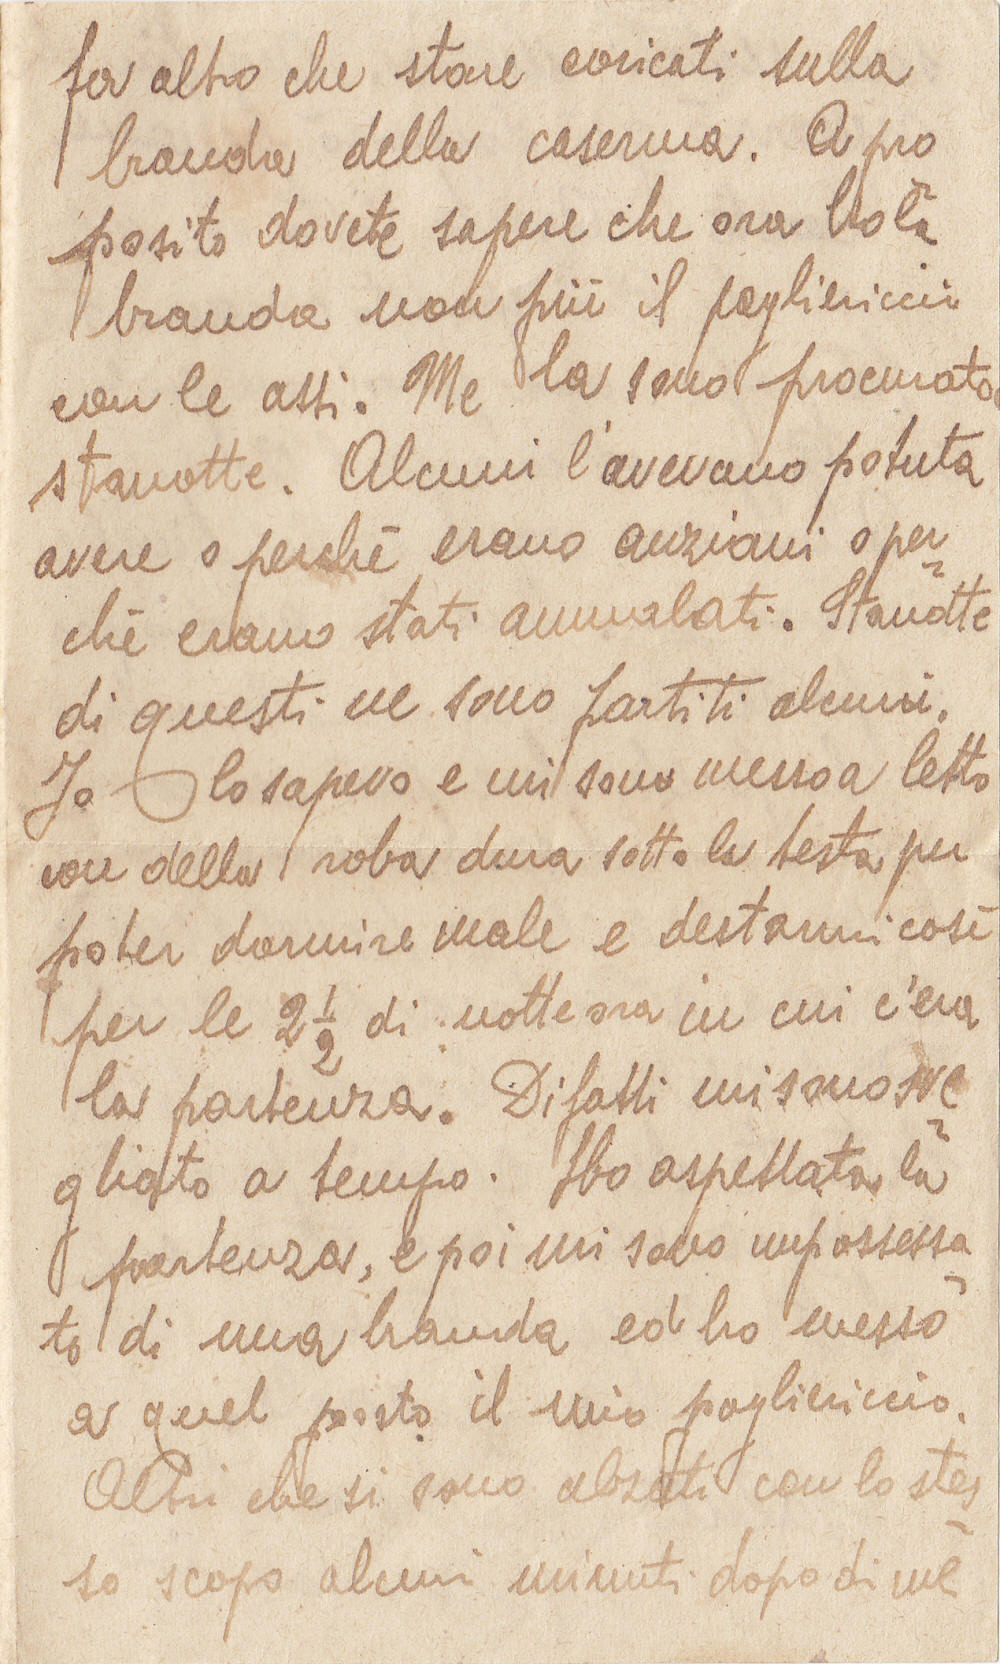 far altro che stare coricati sulla
branda della caserma. A pro
posito dovete sapere che ora ho la
branda non più il pagliericcio
con le assi. Me la sono procurata
stanotte. Alcuni l'avevano potuta
avere o perchè erano anziani o per
chè erano stati ammalati. Stanotte
di questi ne sono partiti alcuni.
Io lo sapevo e mi sono messo a letto
con della roba dura sotto la testa per
poter dormire male e destarmi così
per le 2 1/2 di notte ora in cui c'era
la partenza. Difatti mi sono sve
gliato a tempo. Ho aspettata la
partenza, e poi mi sono impossessa
to di una branda ed ho messo
a quel posto il mio pagliericcio.
Altri che si sono alzati con lo stes
so scopo alcuni minuti dopo di me